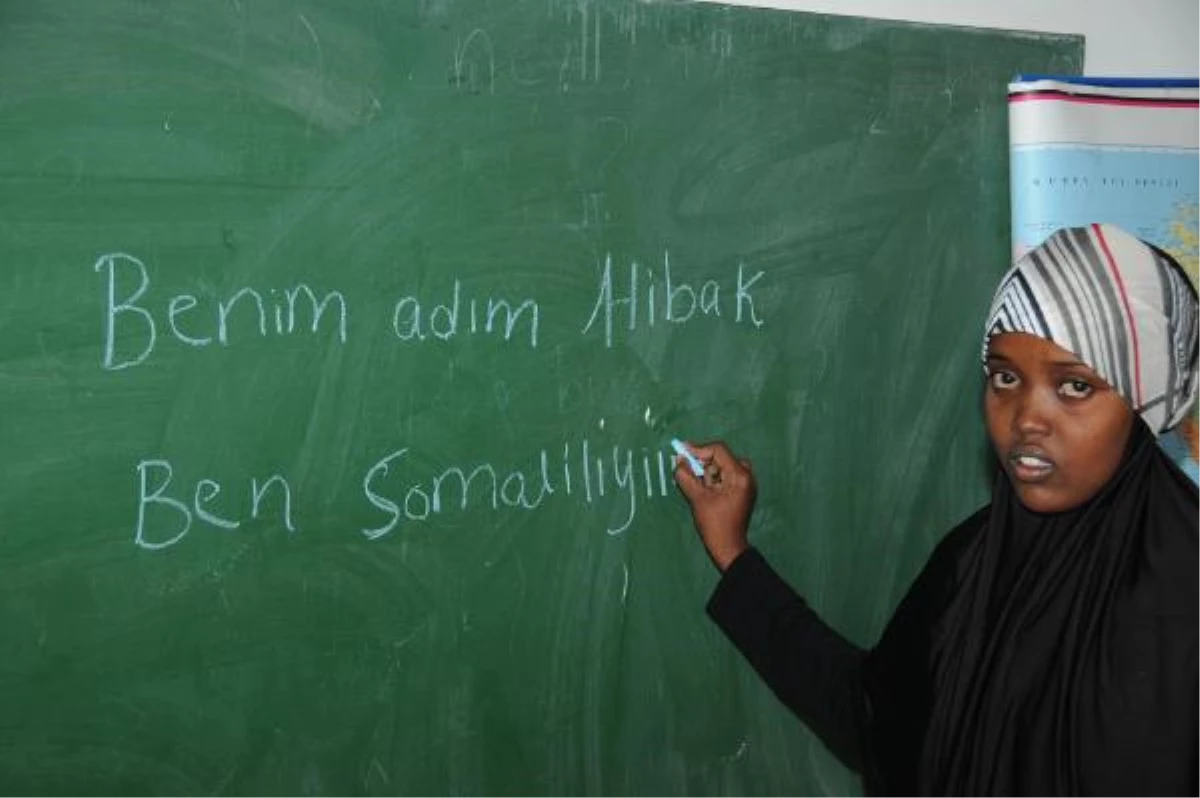 Benim adım Hibak
Ben Somaliliyi